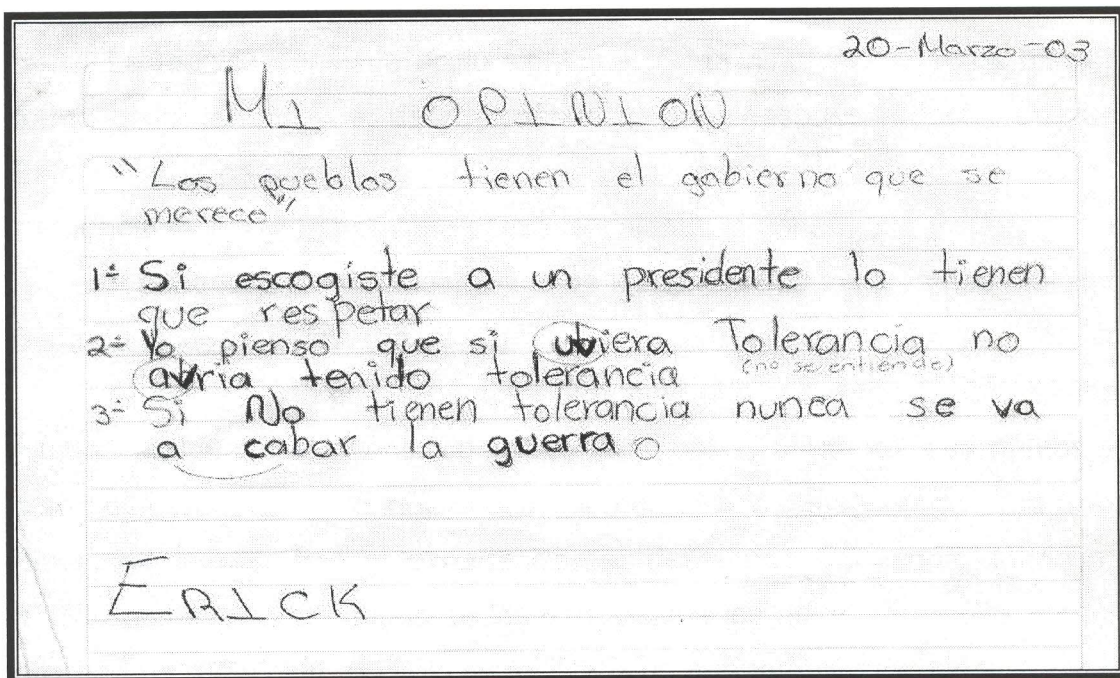 20-Marzo-03
MI OPINION
"Los pueblos tienen el gobierno que se
merece"
1- Si escogiste a un presidente lo tienen
que respetar
2- Yo pienso que si ubiera Tolerancia no
avria tenido tolerancia (no se entiende)
3- Si No tienen tolerancia nunca se va
a cabar la guerra.
ERICK